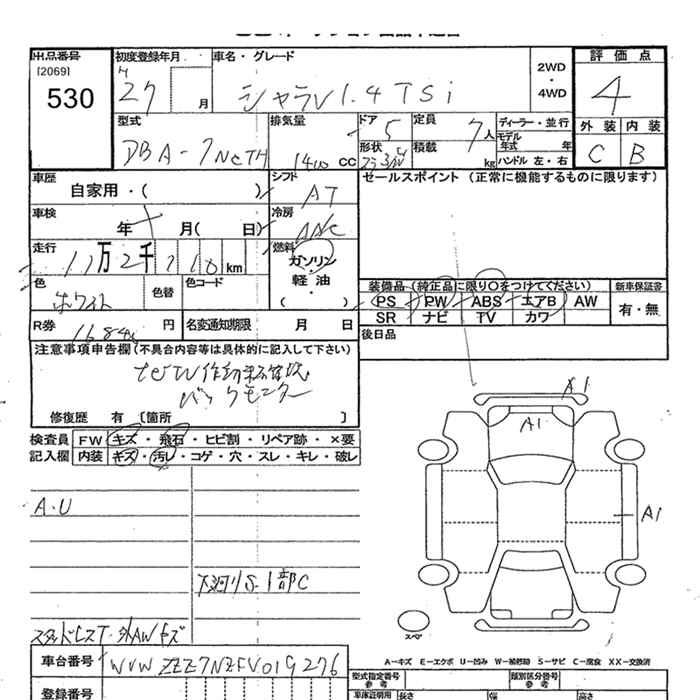 出品番号
[2069]
530
初度登録年月
27 月
車名・グレード
シャラン 1.4 TSi
2WD
・
4WD
評価点
4
外装 内装
C B
型式
DBA-7NCTH
排気量
1400 CC
ドア 5
形状
定員 7人
積載 kg
ディーラー・並行
モデル年式 年
ハンドル 左・右
車歴
自家用・( )
シフト
AT
車検
年 月( 日)
冷房
AAC
走行
11万2千 km
燃料
ガソリン
・
軽油
色
ホワイト
色替
色コード
R券
円
名変通知期限 月 日
セールスポイント (正常に機能するものに限ります)
装備品 (純正品に限り○をつけてください)
PS PW ABS エアB AW
SR ナビ TV カワ
新車保証書
有・無
後日品
注意事項申告欄(不具合内容等は具体的に記入して下さい)
ナビTV作動未確認
バックモニター
修復歴 有 [箇所 ]
検査員
記入欄
FW キズ・飛石・ヒビ割・リペア跡・×要
内装 キズ・汚レ・コゲ・穴・スレ・キレ・破レ
A.U
下廻りS-1部C
スタッドレスT・外AWキズ
A1
A1
A1
スペア
A-キズ E-エクボ U-凹み W-補修跡 S-サビ C-腐食 XX-交換済
車台番号
WVWZZZ7NZFV019276
登録番号
型式指定番号
参考
類別区分番号
参考
車庫証明用 長さ 幅 高さ